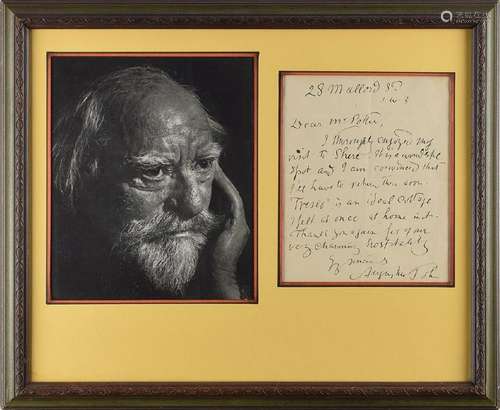 28 Mallord St.
S.W. 3
Dear Mr Potter,
I thoroughly enjoyed my
visit to Shere. It is a wonderful
spot and I am convinced that
I'll have to return there soon.
is an ideal cottage
I felt at once at home in it.
Thank you again for your
very charming hospitality
Yours
Augustus John